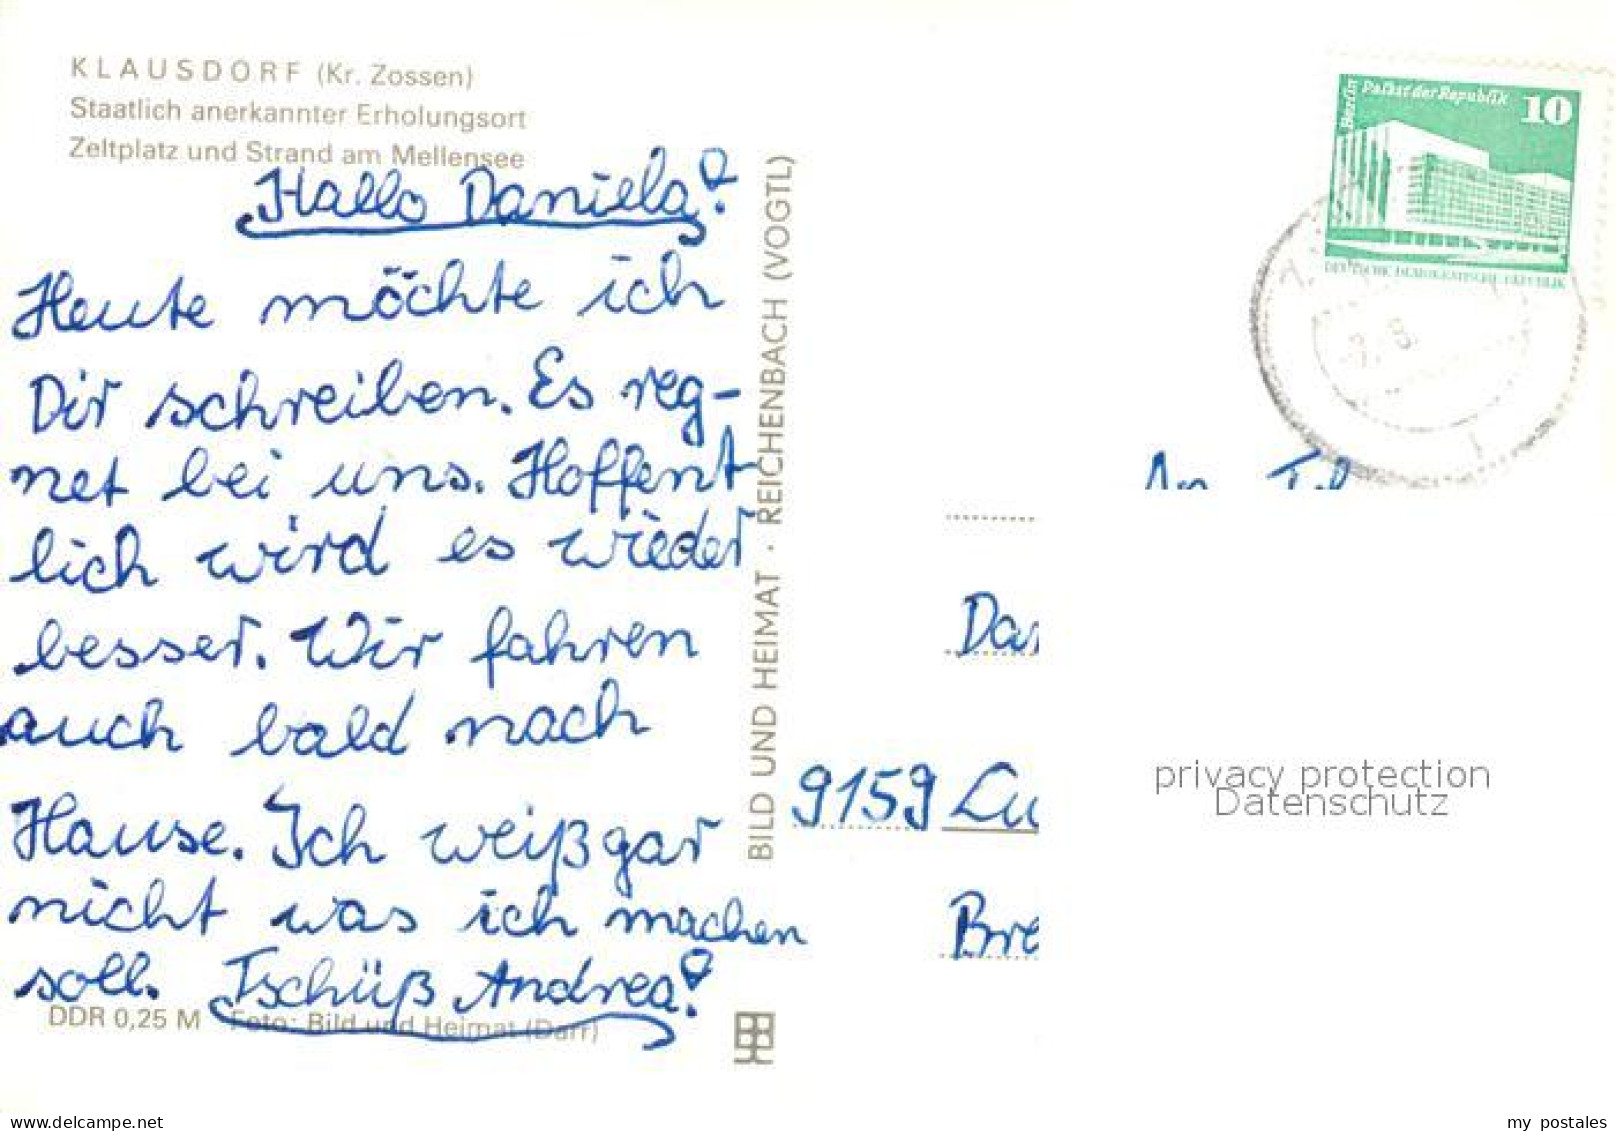 KLAUSDORF (Kr. Zossen)
Staatlich anerkannter Erholungsort
Zeltplatz und Strand am Mellensee
Hallo Daniela!
Heute möchte ich
Dir schreiben. Es reg-
net bei uns. Hoffent
lich wird es wieder
besser. Wir fahren
auch bald nach
Hause. Ich weiß gar
nicht was ich machen
soll. Tschüß Andrea!
DDR 0,25 M Foto: Bild und Heimat (Darr)
BILD UND HEIMAT · REICHENBACH (VOGTL)
Berlin
Palast der Republik
10
DEUTSCHE DEMOKRATISCHE REPUBLIK
9159 Lu
Bre
privacy protection
Datenschutz
www.delcampe.net
my_postales